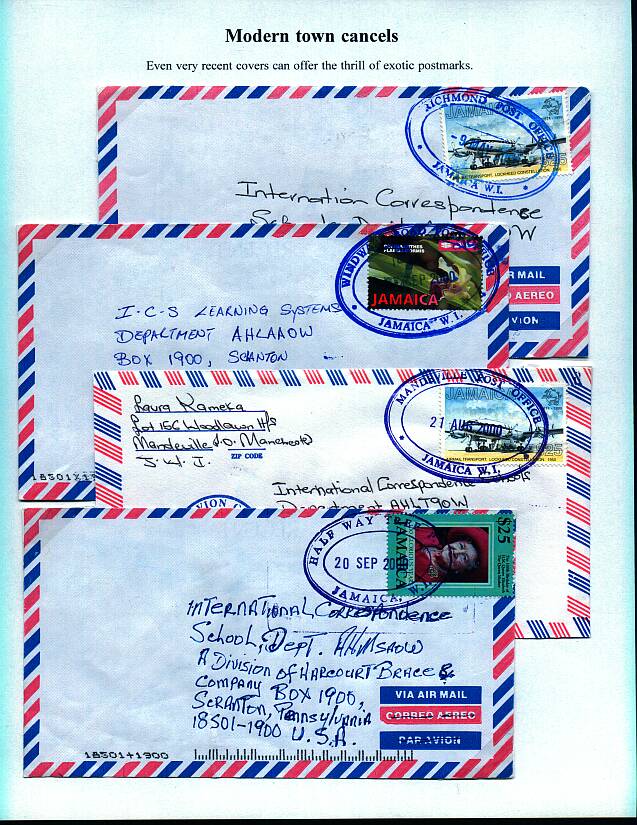 Modern town cancels
Even very recent covers can offer the thrill of exotic postmarks.
RICHMOND POST OFFICE
JAMAICA W.I.
JAMAICA
$25
TRANSPORT, LOCKHEED CONSTELLATION
Internation Correspondence
AIR MAIL
CORREO AEREO
PAR AVION
WINDWARD ROAD POST OFFICE
2000
JAMAICA W.I.
JAMAICA
I.C.S LEARNING SYSTEMS
DEPARTMENT AHLAAOW
BOX 1900, SCRANTON
18501
MANDEVILLE POST OFFICE
21 AUG 2000
JAMAICA W.I.
JAMAICA
$25
AIRMAIL TRANSPORT, LOCKHEED CONSTELLATION 1950
Laura Kameka
Lot 156 Woodlawn H/s
Mandeville P.O. Manchester
J.W.I.
ZIP CODE
International Correspondence Schools
Department AHLT90W
HALF WAY TREE
20 SEP 2000
JAMAICA, W.I.
JAMAICA
$25
INTERNATIONAL Correspondence
School, Dept. AHMSAOW
A Division of HARCOURT BRACE &
COMPANY BOX 1900,
SCRANTON, Pennsylvania
18501-1900 U.S.A.
VIA AIR MAIL
CORREO AEREO
PAR AVION
18501+1900